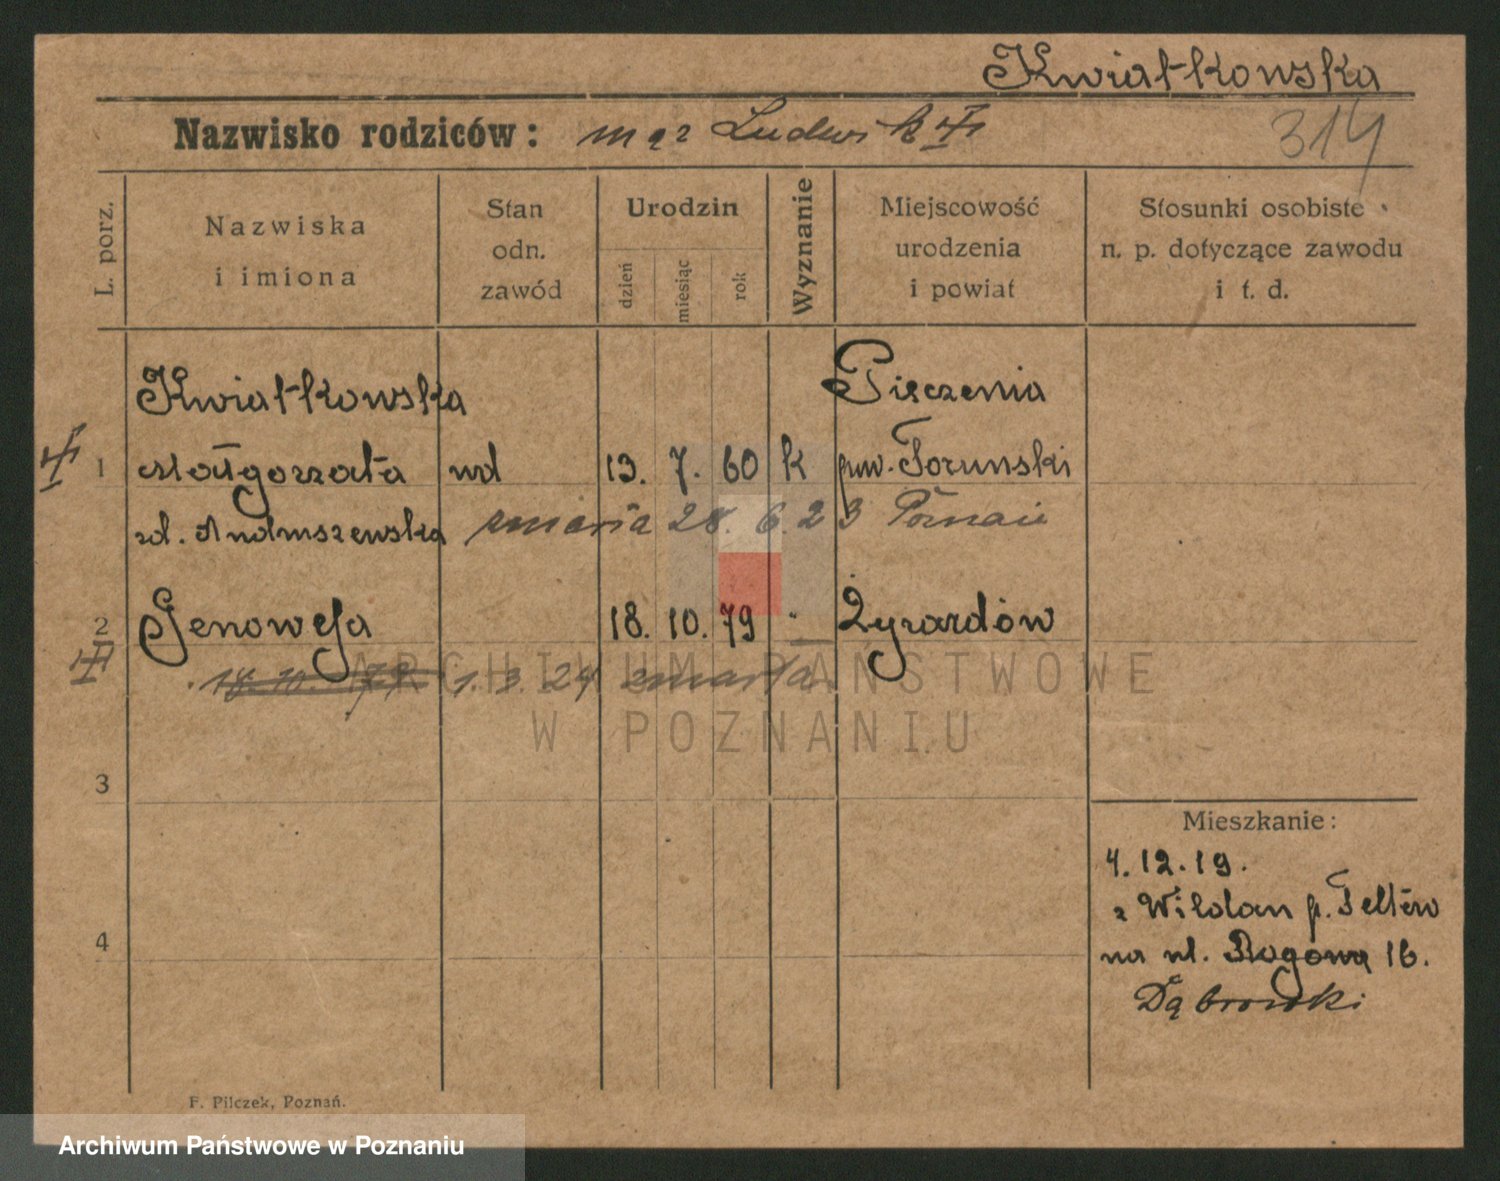 Kwiatkowska
314
Nazwisko rodziców: mąż Ludwik
L. porz.
Nazwiska
i imiona
Stan
odn.
zawód
Urodzin
dzień
miesiąc
rok
Wyznanie
Miejscowość
urodzenia
i powiat
Stosunki osobiste
n. p. dotyczące zawodu
i t. d.
Kwiatkowska Pieczenia
1 Małgorzata wd 13. 7. 60 k pow. Toruński
zd. Andruszewska zmarła 28. 6. 23 Poznań
2 Genowefa 18. 10. 79 " Żyrardów
18. 10. 79. 1. 3. 24 zmarła
3
4
Mieszkanie:
4. 12. 19.
z Wildan p.
na ul. Rogowa 16.
Dąbrowski
F. Pilczek, Poznań.
ARCHIWUM PAŃSTWOWE
W POZNANIU
Archiwum Państwowe w Poznaniu